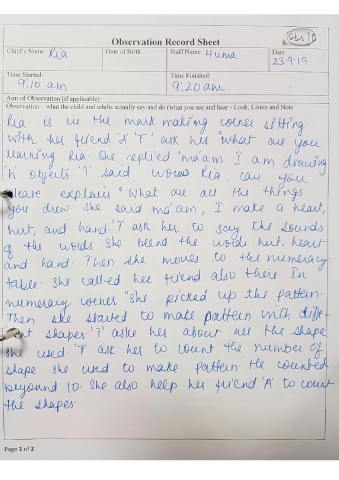 Obs 1
Observation Record Sheet
Child's Name Ria Date of Birth Staff Name Huma Date 23-9-19
Time Started: 9.10 am Time Finished: 9.20 am
Aim of Observation (if applicable)
Observation - what the child and adults actually say and do (what you see and hear - Look, Listen and Note
Ria is in the mark making corner sitting
with her friend 'A' 'T' ask her "what are you
making Ria. She replied 'ma'am I am drawing
'h' objects. 'T' said woww Ria, can you
please explain "What are all the things
you drew. She said ma'am, I make a heart,
hut, and hand. 'T' ask her to say the sounds
of the words she blend the words hut, heart
and hand. Then she moves to the numeracy
table. She called her friend also there. In
numeracy corner "She picked up the pattern.
Then she started to make pattern with diffe-
rent shapes. 'T' aske her about all the shape
she used. 'T' ask her to count the number of
shape she used to make pattern. He counted
beyound 10. She also help her friend 'A' to count
the shapes.
Page 1 of 2